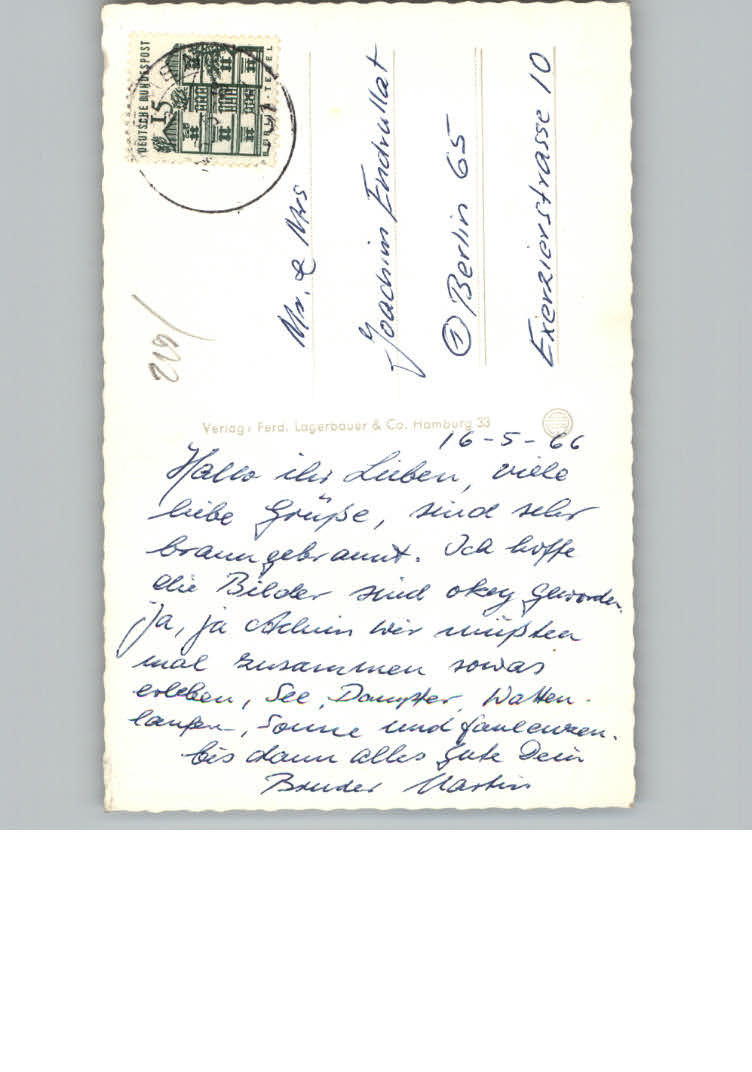 DEUTSCHE BUNDESPOST
15
BERLIN-TEGEL
Mr. & Mrs
Joachim Endrullat
① Berlin 65
Exerzierstrasse 10
Verlag: Ferd. Lagerbauer & Co. Hamburg 33
16-5-66
Hallo ihr Lieben, viele
liebe Grüße, sind sehr
braun gebrannt. Ich hoffe
die Bilder sind okey geworden.
Ja, ja Achim wir müßten
mal zusammen sowas
erleben, See, Dampfer, Watten-
laufen, Sonne und faulenzen.
bis dann alles gute Dein
Bruder Martin